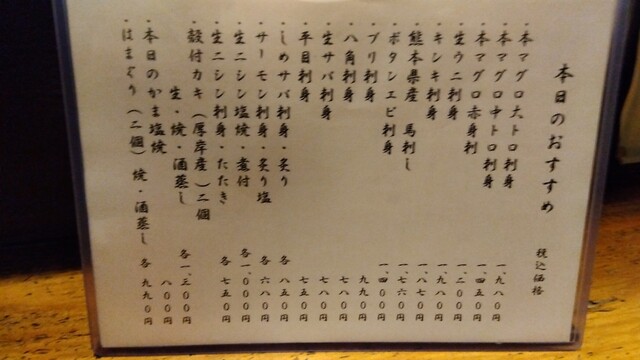 本日のおすすめ 税込価格
・本マグロ大トロ刺身 一、九八〇円
・本マグロ中トロ刺身 一、四五〇円
・本マグロ赤身刺 一、二〇〇円
・生ウニ刺身 一、九八〇円
・キンキ刺身 一、八七〇円
・熊本県産 馬刺し 一、七六〇円
・ボタンエビ刺身 一、四〇〇円
・ブリ刺身 九九〇円
・八角刺身 七八〇円
・生サバ刺身 七八〇円
・平目刺身
・しめサバ刺身・炙り 各 八五〇円
・サーモン刺身・炙り塩 各 六八〇円
・生ニシン塩焼・煮付 各一、〇〇〇円
・生ニシン刺身・たたき 各 七五〇円
・殻付カキ(厚岸産)二個
生・焼・酒蒸し 各一、三〇〇円
・本日のかま塩焼 八〇〇円
・はまぐり(二個)焼・酒蒸し 各 九九〇円